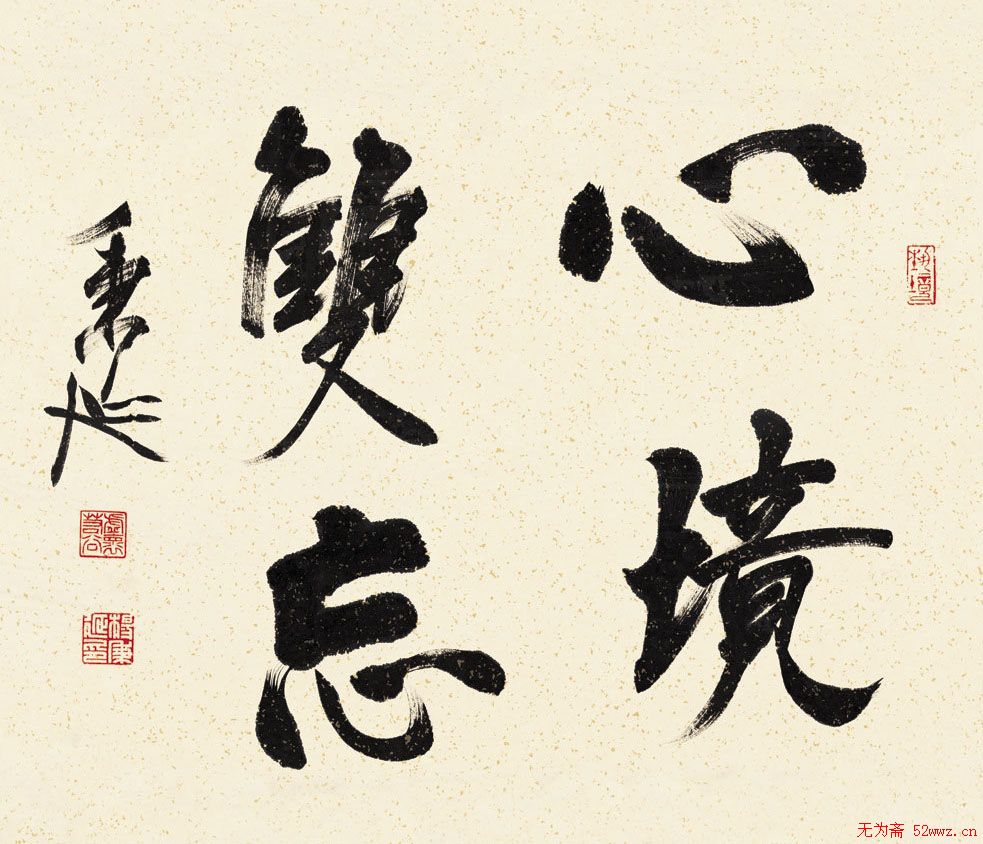 心境
雙忘
秉延
楊秉延印
无为斋 52wwz.cn